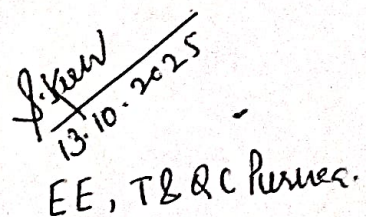 13.10.2025
EE, T&QC Purnea.